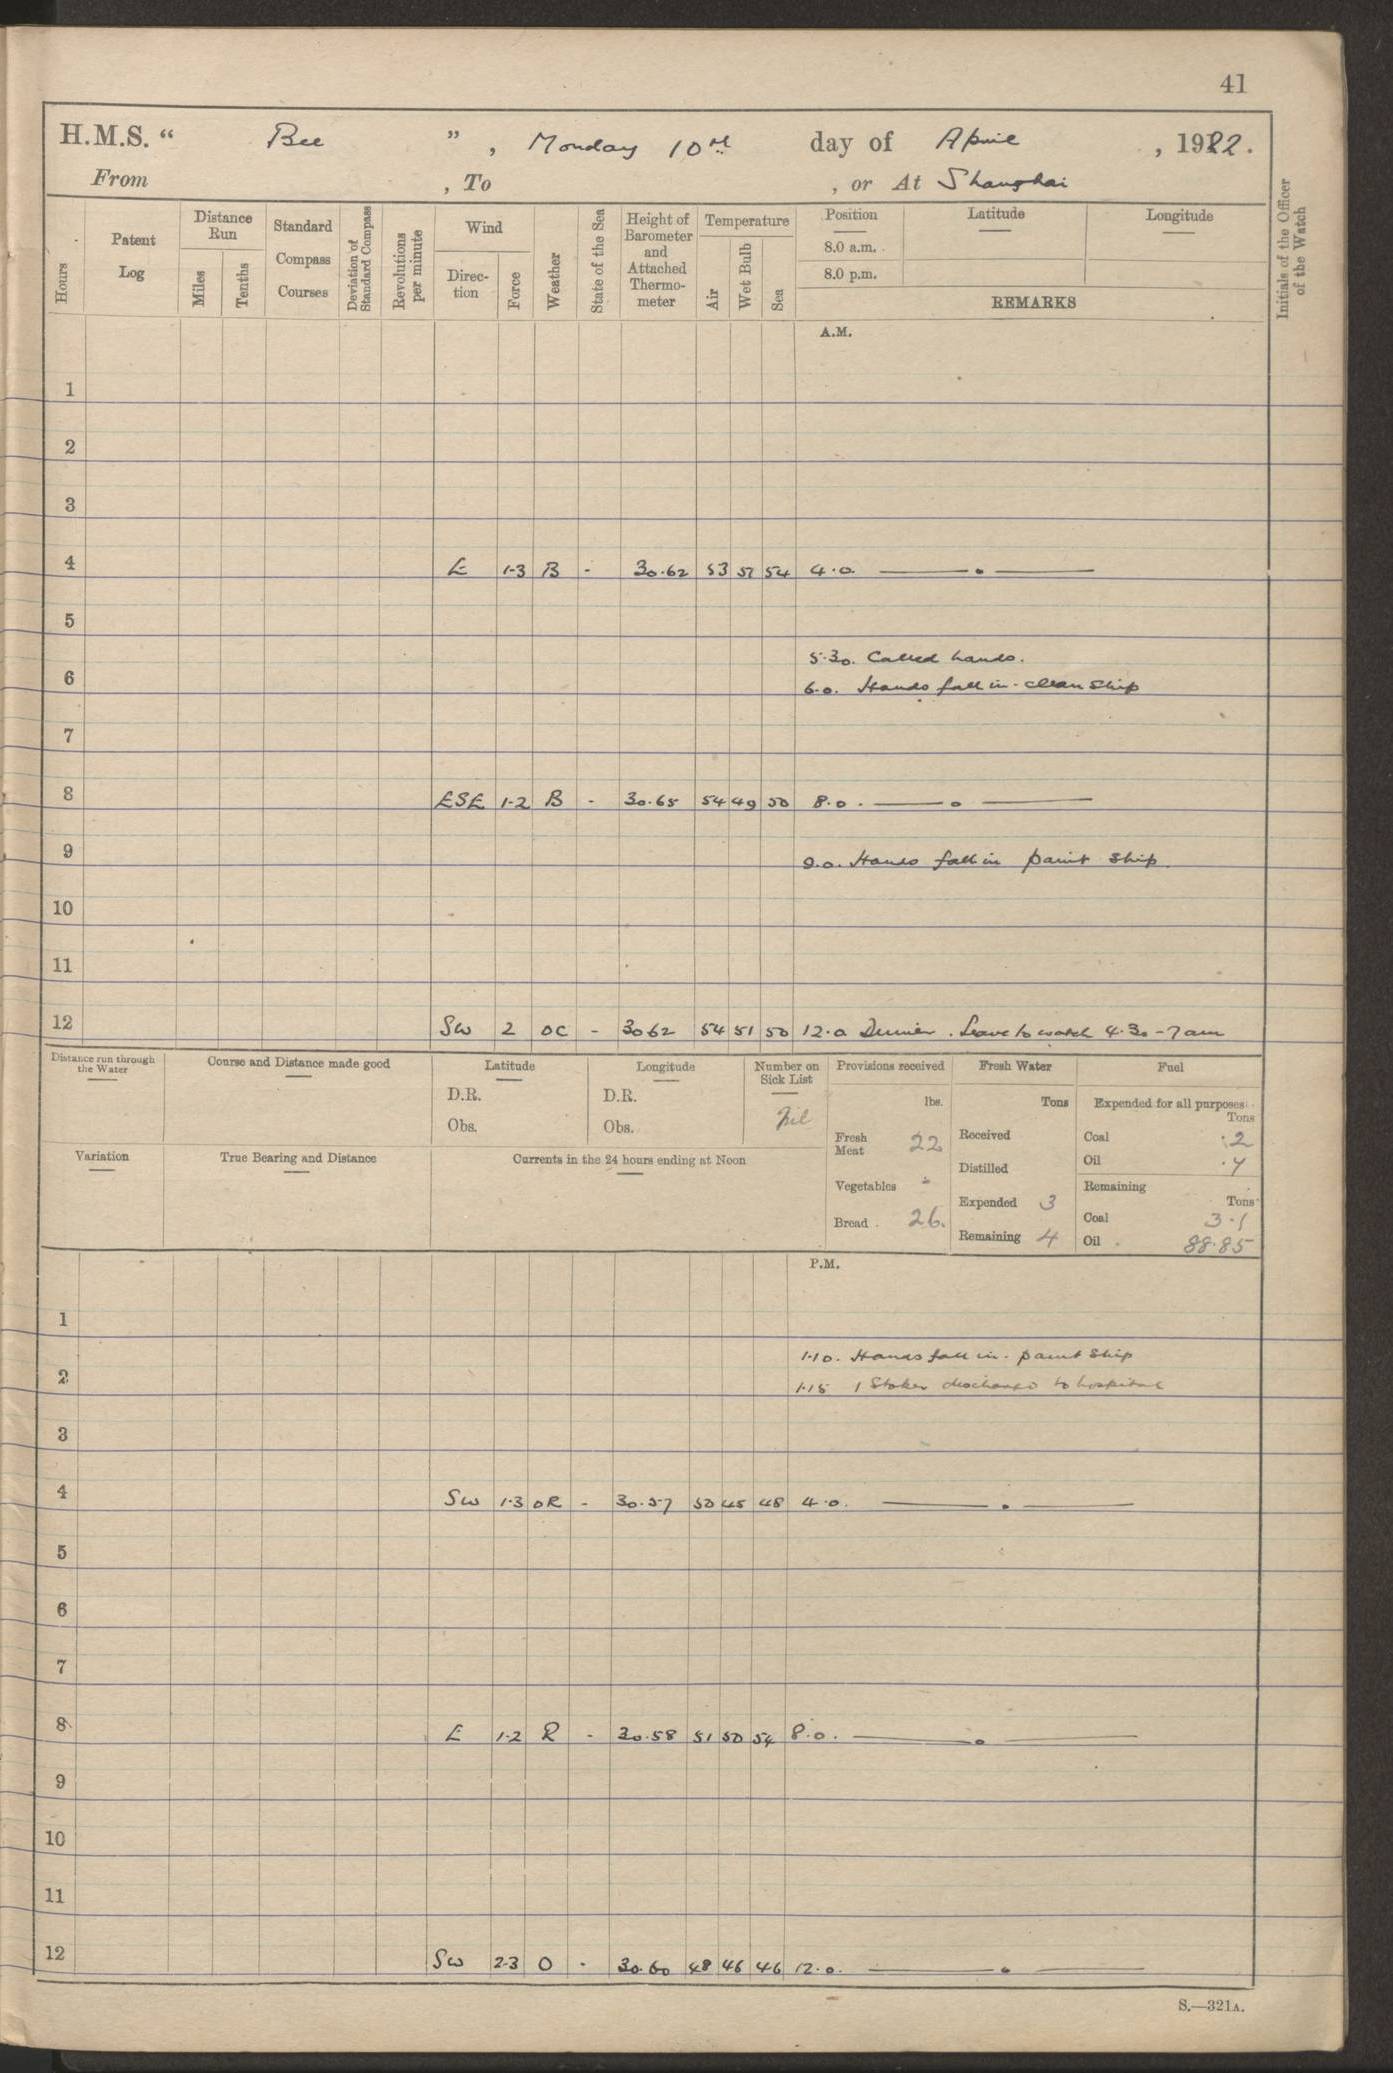 41
H.M.S. " Bee ", Monday 10th day of April, 1922.
From , To , or At Shanghai
Hours
Patent Log
Distance Run
Miles
Tenths
Standard Compass Courses
Deviation of Standard Compass
Revolutions per minute
Wind
Direction
Force
Weather
State of the Sea
Height of Barometer and Attached Thermometer
Temperature
Air
Wet Bulb
Sea
Position Latitude Longitude
8.0 a.m.
8.0 p.m.
REMARKS
Initials of the Officer of the Watch
A.M.
1
2
3
4 E 1-3 B - 30.62 53 51 54 4.0.
5
5.30. Called hands.
6 6.0. Hands fall in - clean ship
7
8 ESE 1-2 B - 30.65 54 49 50 8.0.
9 9.0. Hands fall in paint ship.
10
11
12 SW 2 OC - 3062 54 51 50 12.0 Dinner. Leave to watch 4.30 - 7 am
Distance run through the Water
Course and Distance made good
Latitude
D.R.
Obs.
Longitude
D.R.
Obs.
Number on Sick List
Nil
Provisions received
lbs.
Fresh Meat 22
Vegetables -
Bread 26.
Fresh Water
Tons
Received
Distilled
Expended 3
Remaining 4
Fuel
Expended for all purposes
Tons
Coal .2
Oil .4
Remaining
Tons
Coal 3.1
Oil 88.85
Variation
True Bearing and Distance
Currents in the 24 hours ending at Noon
P.M.
1
1.10. Hands fall in. paint ship
2 1.15 1 Stoker discharged to hospital
3
4 SW 1-3 OR - 30.57 50 45 48 4.0.
5
6
7
8 E 1-2 R - 30.58 51 50 54 8.0.
9
10
11
12 SW 2-3 O - 30.60 48 46 46 12.0.
S.—321A.